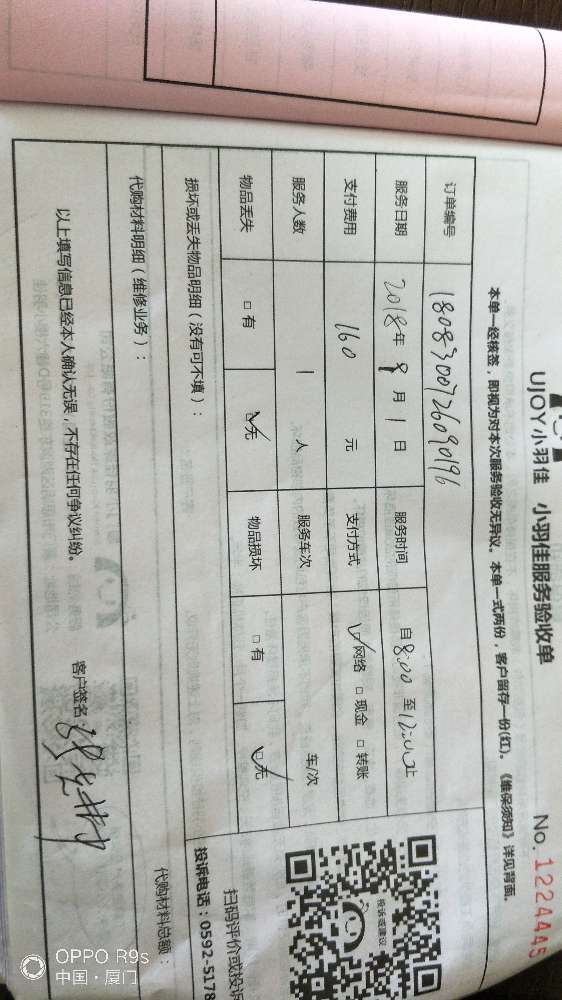 UJOY小羽佳 小羽佳服务验收单
No. 1224445
本单一经核签，即视为对本次服务验收无异议。本单一式两份，客户留存一份(红)。《维保须知》详见背面。
订单编号 1808300726090196
服务日期 2018年 9月 1日 服务时间 自 8:00 至 12:00 止
支付费用 160 元 支付方式 ☑网络 □现金 □转账
服务人数 1 人 服务车次 车/次
物品丢失 □有 ☑无 物品损坏 □有 ☑无
损坏或丢失物品明细（没有可不填）：
代购材料明细（维修业务）： 代购材料总额：
以上填写信息已经本人确认无误，不存在任何争议纠纷。 客户签名：
投诉或建议
扫码评价或投诉
投诉电话：0592-5178
OPPO R9s
中国·厦门